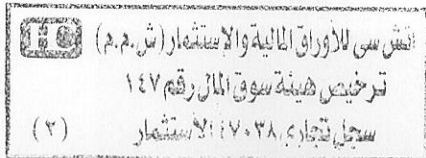 اتش سى للأوراق المالية والاستثمار (ش.م.م) HC
ترخيص هيئة سوق المال رقم ١٤٧
سجل تجارى ٤٧٠٣٨ الاستثمار (٢)